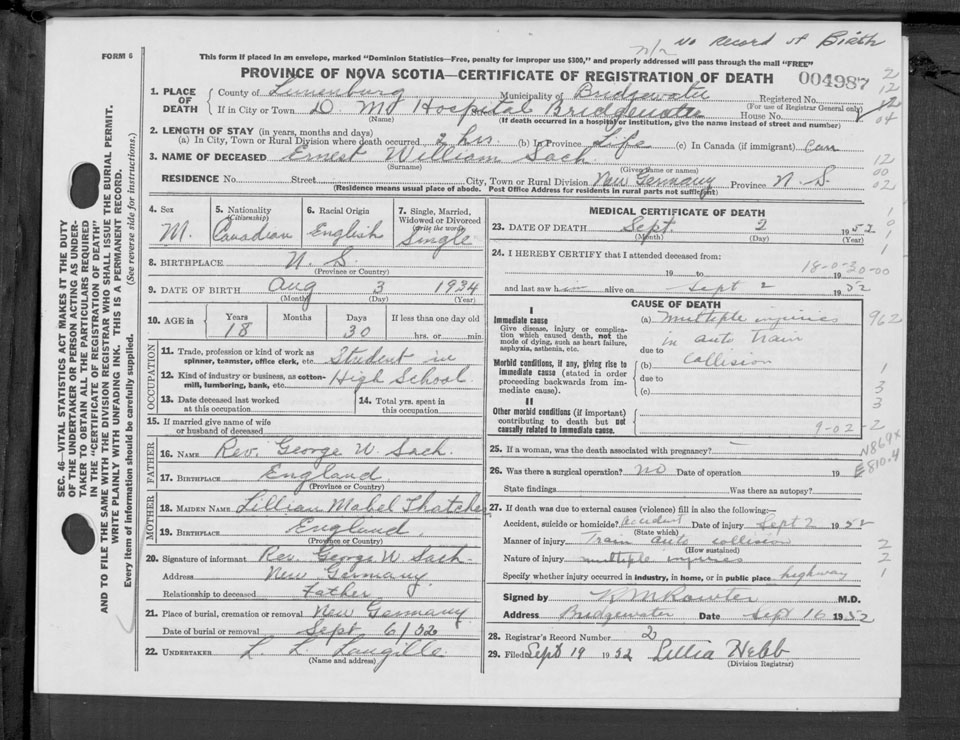 n/r No Record of Birth
FORM 6
This form if placed in an envelope, marked "Dominion Statistics—Free, penalty for improper use $300," and properly addressed will pass through the mail "FREE"
PROVINCE OF NOVA SCOTIA—CERTIFICATE OF REGISTRATION OF DEATH 004987
1. PLACE OF DEATH
County of Lunenburg Municipality of Bridgewater Registered No.
(For use of Registrar General only)
If in City or Town D. M. Hospital Street Bridgewater House No.
(Name) (If death occurred in a hospital or institution, give the name instead of street and number)
2. LENGTH OF STAY (in years, months and days)
(a) In City, Town or Rural Division where death occurred 2 hrs. (b) In Province Life (c) In Canada (if immigrant) Can
3. NAME OF DECEASED Ernest William Sach
(Surname) (Given name or names)
RESIDENCE No. Street City, Town or Rural Division New Germany Province N. S.
(Residence means usual place of abode. Post Office Address for residents in rural parts not sufficient)
4. Sex M.
5. Nationality (Citizenship) Canadian
6. Racial Origin English
7. Single, Married, Widowed or Divorced (write the word) Single
8. BIRTHPLACE N. S.
(Province or Country)
9. DATE OF BIRTH Aug 3 1934
(Month) (Day) (Year)
10. AGE in Years Months Days If less than one day old
18 30 hrs. or min.
OCCUPATION
11. Trade, profession or kind of work as spinner, teamster, office clerk, etc. Student in
12. Kind of industry or business, as cotton-mill, lumbering, bank, etc. High School
13. Date deceased last worked at this occupation
14. Total yrs. spent in this occupation
15. If married give name of wife or husband of deceased
FATHER
16. Name Rev. George W. Sach.
17. Birthplace England
(Province or Country)
MOTHER
18. Maiden Name Lillian Mabel Thatcher
19. Birthplace England.
(Province or Country)
20. Signature of informant Rev. George W Sach
Address New Germany.
Relationship to deceased Father
21. Place of burial, cremation or removal New Germany
Date of burial or removal Sept 6/52
22. UNDERTAKER L. L. Langille
(Name and address)
MEDICAL CERTIFICATE OF DEATH
23. DATE OF DEATH Sept. 2 1952
(Month) (Day) (Year)
24. I HEREBY CERTIFY that I attended deceased from:
18-0-30-00
19 to 19
and last saw him alive on Sept 2 1952
CAUSE OF DEATH
I
Immediate cause
Give disease, injury or complication which caused death, not the mode of dying, such as heart failure, asphyxia, asthenia, etc.
(a) Multiple injuries 962
in auto train
due to
Morbid conditions, if any, giving rise to immediate cause (stated in order proceeding backwards from immediate cause).
(b) collision
due to
(c)
II
Other morbid conditions (if important) contributing to death but not causally related to immediate cause.
9-02-2
25. If a woman, was the death associated with pregnancy? N869X
26. Was there a surgical operation? no Date of operation 19 E810.4
State findings Was there an autopsy?
27. If death was due to external causes (violence) fill in also the following:
Accident, suicide or homicide? Accident Date of injury Sept 2 1952
(State which)
Manner of injury Train auto collision
(How sustained)
Nature of injury multiple injuries
Specify whether injury occurred in industry, in home, or in public place highway
Signed by M.D.
Address Bridgewater Date Sept 16 1952
28. Registrar's Record Number 2
29. Filed Sept 19 1952 Lillia Webb
(Division Registrar)
SEC. 46—VITAL STATISTICS ACT MAKES IT THE DUTY OF THE UNDERTAKER OR PERSON ACTING AS UNDERTAKER TO OBTAIN ALL THE PARTICULARS REQUIRED IN THE "CERTIFICATE OF REGISTRATION OF DEATH" AND TO FILE THE SAME WITH THE DIVISION REGISTRAR WHO SHALL ISSUE THE BURIAL PERMIT.
WRITE PLAINLY WITH UNFADING INK. THIS IS A PERMANENT RECORD.
Every item of information should be carefully supplied. (See reverse side for instructions.)